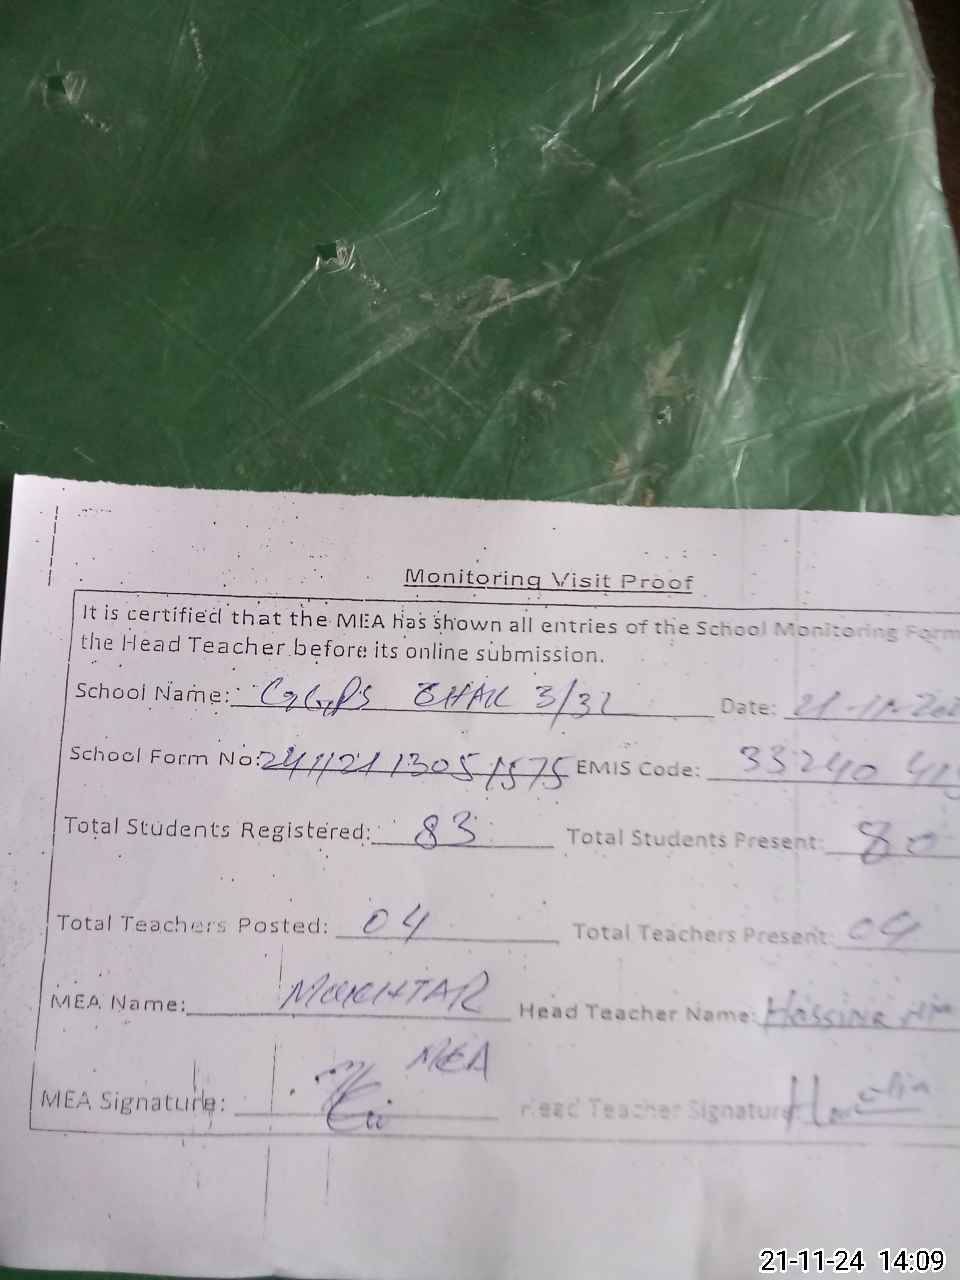 Monitoring Visit Proof
It is certified that the MEA has shown all entries of the School Monitoring Form
the Head Teacher before its online submission.
School Name: GGPS CHAK 3/32 Date: 21-11-202
School Form No: 241121130515 75 EMIS Code: 33240 415
Total Students Registered: 83 Total Students Present: 80
Total Teachers Posted: 04 Total Teachers Present: 04
MEA Name: MUKHTAR Head Teacher Name:
MEA
MEA Signature: Head Teacher Signature:
21-11-24 14:09